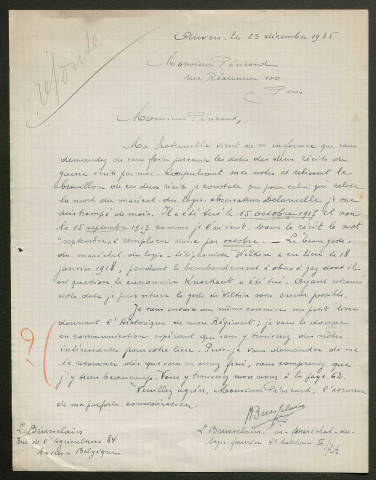 réponse
Anvers, le 23 décembre 1935
Monsieur Péricard
rue Réaumur 100
Paris
Monsieur Péricard,
Ma maternelle vient de m'informer que vous
demandez de vous faire parvenir les dates des deux récits de
guerre écrits par moi. Compulsant mes notes et relisant le
brouillon de ces deux récits je constate que pour celui qui relate
la mort du maréchal des logis observateur Delaruelle je me
suis trompé de mois. Il a été tué le 15 octobre 1917 et non
le 15 septembre 1917 comme je l'ai écrit. Dans le récit le mot
"septembre" à remplacer donc par octobre. — Le beau geste
du maréchal des logis téléphoniste Wilthin a eu lieu le 18
janvier 1918, pendant le bombardement à obus à gaz dont il
est question le canonnier Knockaert a été tué. Ayant retrouvé
cette date je puis situer le geste de Wilthin sans erreur possible.
Je vous envoie au même courrier un petit livre
donnant l'Historique de mon Régiment ; je vous le donne
en communication espérant que vous y trouverez des notes
intéressantes pour votre livre. Puis-je vous demander de me
le retourner dès que vous en serez fini, vous comprenez que
j'y tiens beaucoup. Vous y trouverez mon nom à la page 62.
Veuillez agréer, Monsieur Péricard, l'assurance
de ma parfaite considération.
?
L. Brusselain
Rue de l'Agriculture 84
Anvers - Belgique
L. Brusselain ex-maréchal-des